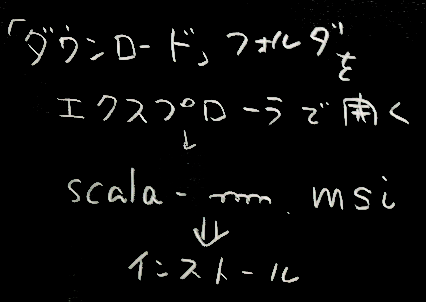 「ダウンロード」フォルダを
エクスプローラで開く
↓
scala-～.msi
⇓
インストール